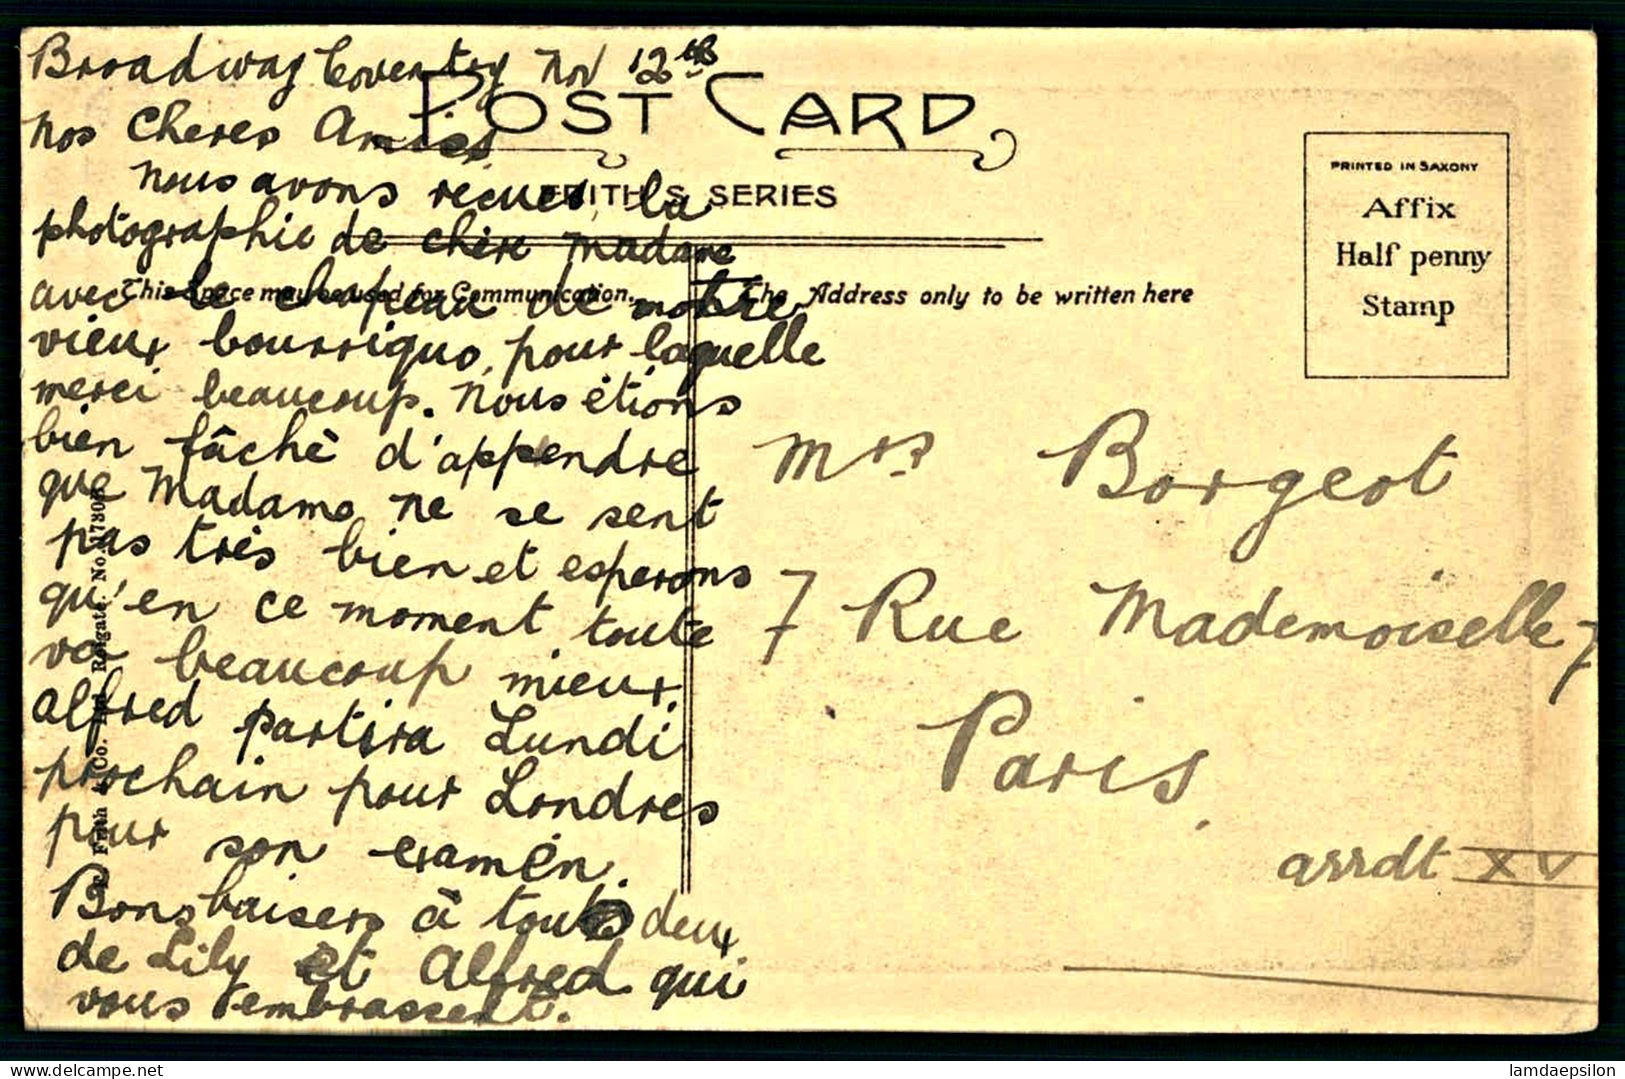 Broadway Coventry Nov 12th
POST CARD
nos Cheres Amies
nous avons recues la
FRITH'S SERIES
photographie de chère madame
This Space may be used for Communication.
The Address only to be written here
avec le chapeau de notre
vieux bourriquo, pour laquelle
merci beaucoup. Nous étions
bien fâchè d'appendre
que Madame ne se sent
pas très bien et esperons
qu'en ce moment toute
va beaucoup mieux.
Alfred partira Lundi
prochain pour Londres
pour son examen.
Bons baisers à touts deux
de Lily et Alfred qui
vous embrassent.
F. Frith & Co. Ltd. Reigate. No.
PRINTED IN SAXONY
Affix
Half penny
Stamp
Mrs Borgeot
7 Rue Mademoiselle 7
Paris
arrdt XV
delcampe.net
lamdaepsilon